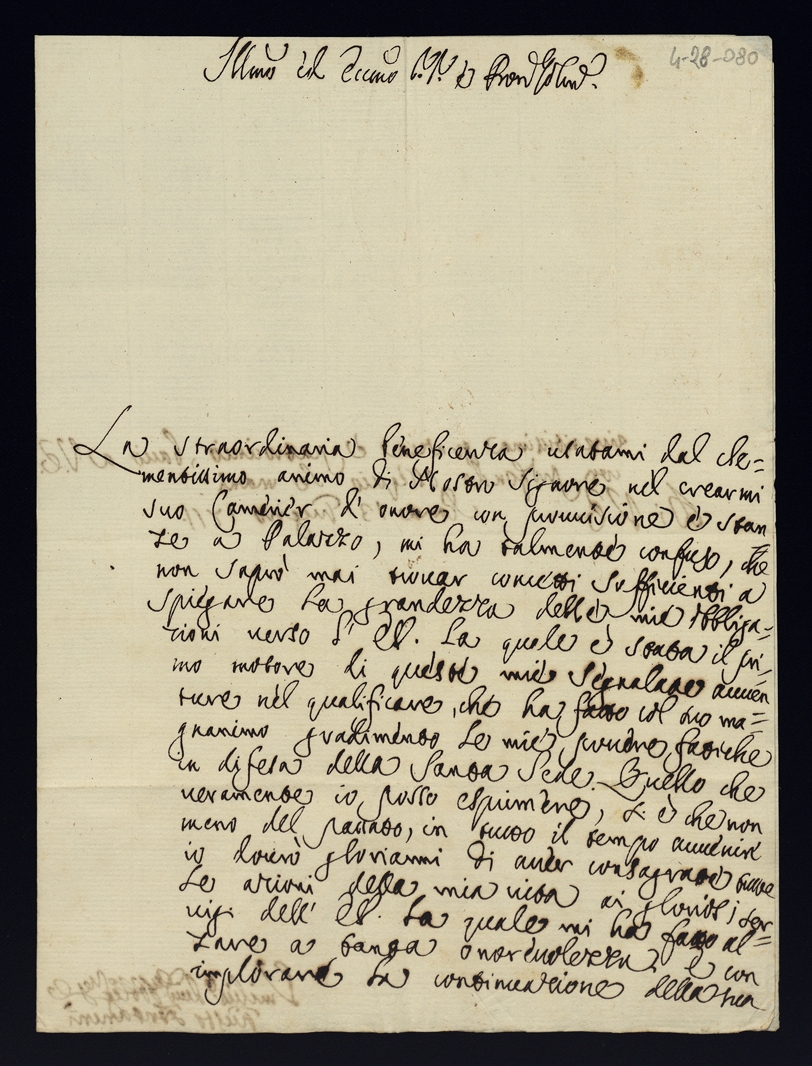 4-28-080
Illmo ed Eccmo Sig. e Pron Colmo.
La straordinaria beneficenza usatami dal cle=
mentissimo animo di Nostro Signore nel crearmi
suo Camerier d'onore con provisione e stan
ze a Palazzo, mi ha talmente confuso, che
non saprò mai trovar concetti sufficienti a
spiegare la grandezza delle mie obbliga=
zioni verso l'E.V. La quale è stata il pri=
mo motore di queste mie segnalate avven
ture nel qualificare, che ha fatto col suo ma=
gnanimo gradimento le mie povere fatiche
in difesa della Santa Sede. Quello che
veramente io posso esprimere, si è che non
meno del passato, in tutto il tempo avvenire
io dovrò gloriarmi di aver consagrate tutte
le azioni della mia vita ai gloriosi ser
vigi dell'E.V. La quale mi ha fatto al=
zare a tanta onorevolezza, e con
implorare la continuazione della sua